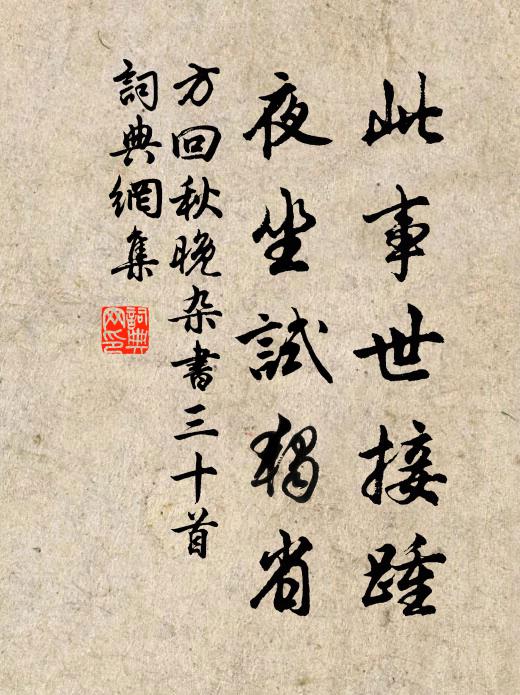 此事世接踵
夜坐試獨省
方回秋晚杂書三十首
詞典網集
詞典網印